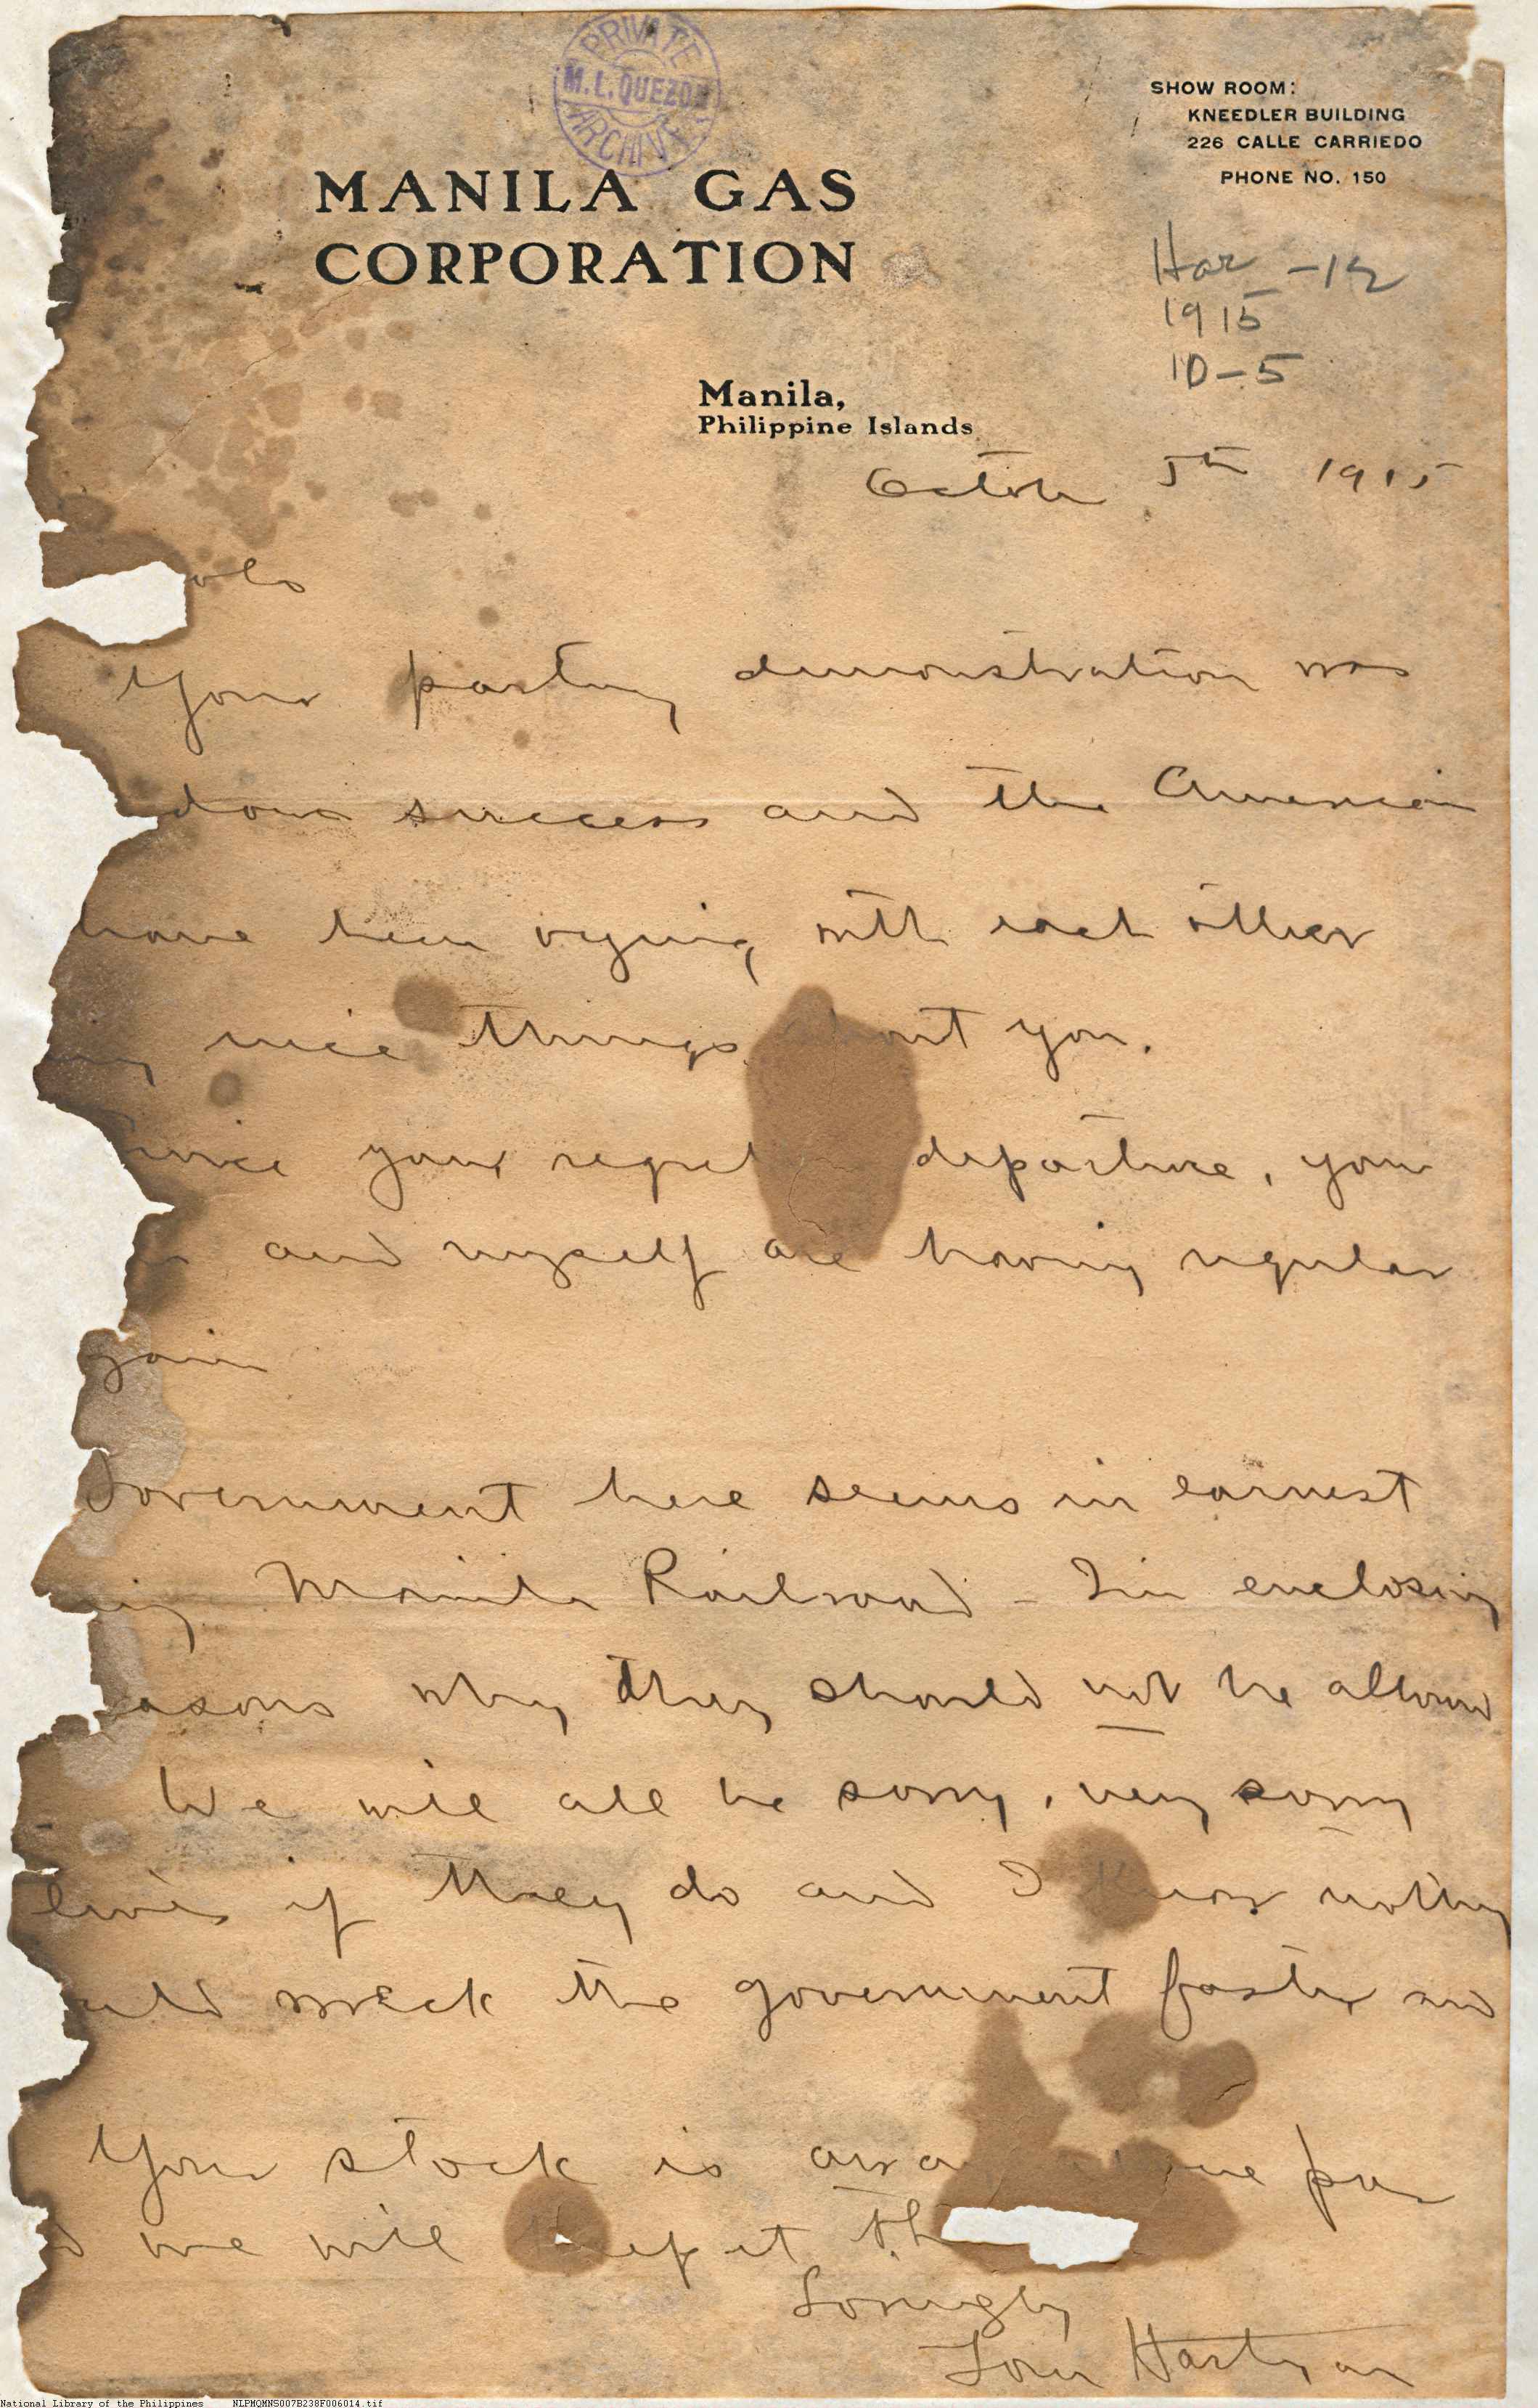 PRIVATE
M. L. QUEZON
ARCHIVE
SHOW ROOM:
KNEEDLER BUILDING
226 CALLE CARRIEDO
PHONE NO. 150
MANILA GAS
CORPORATION
1915
10-5
Manila,
Philippine Islands
October 5th 1915
Your parting demonstration was
success and the American
have been vying with each other
nice things about you.
Since your departure, your
and myself are having regular
Government here seems in earnest
Manila Railroad - I'm enclosing
why they should not be allowed
We will all be sorry, very sorry
if they do and I know nothing
wreck the government faster and
Your stock is par
we will keep it
Lovingly
National Library of the Philippines NLPMQMNS007B238F006014.tif